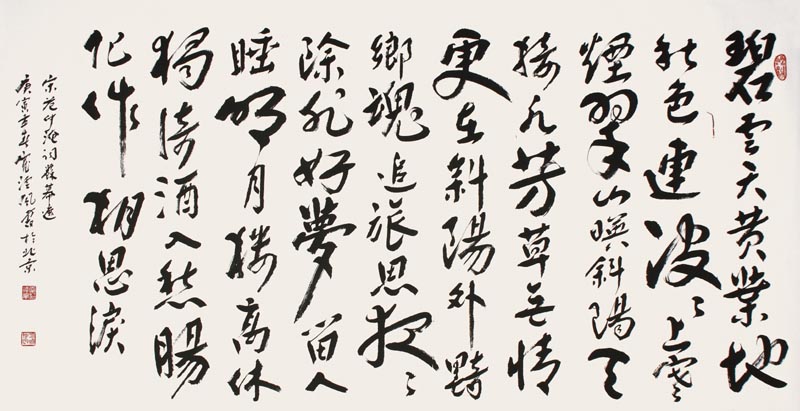 碧雲天黃葉地
秋色連波々上寒
煙翠山暎斜陽天
接水芳草无情
更在斜陽外黯
鄉魂追旅思夜々
除非好夢留人
睡明月樓高休
獨倚酒入愁腸
化作相思淚
宋范仲淹詞蘇幕遮
庚寅年春書於北京